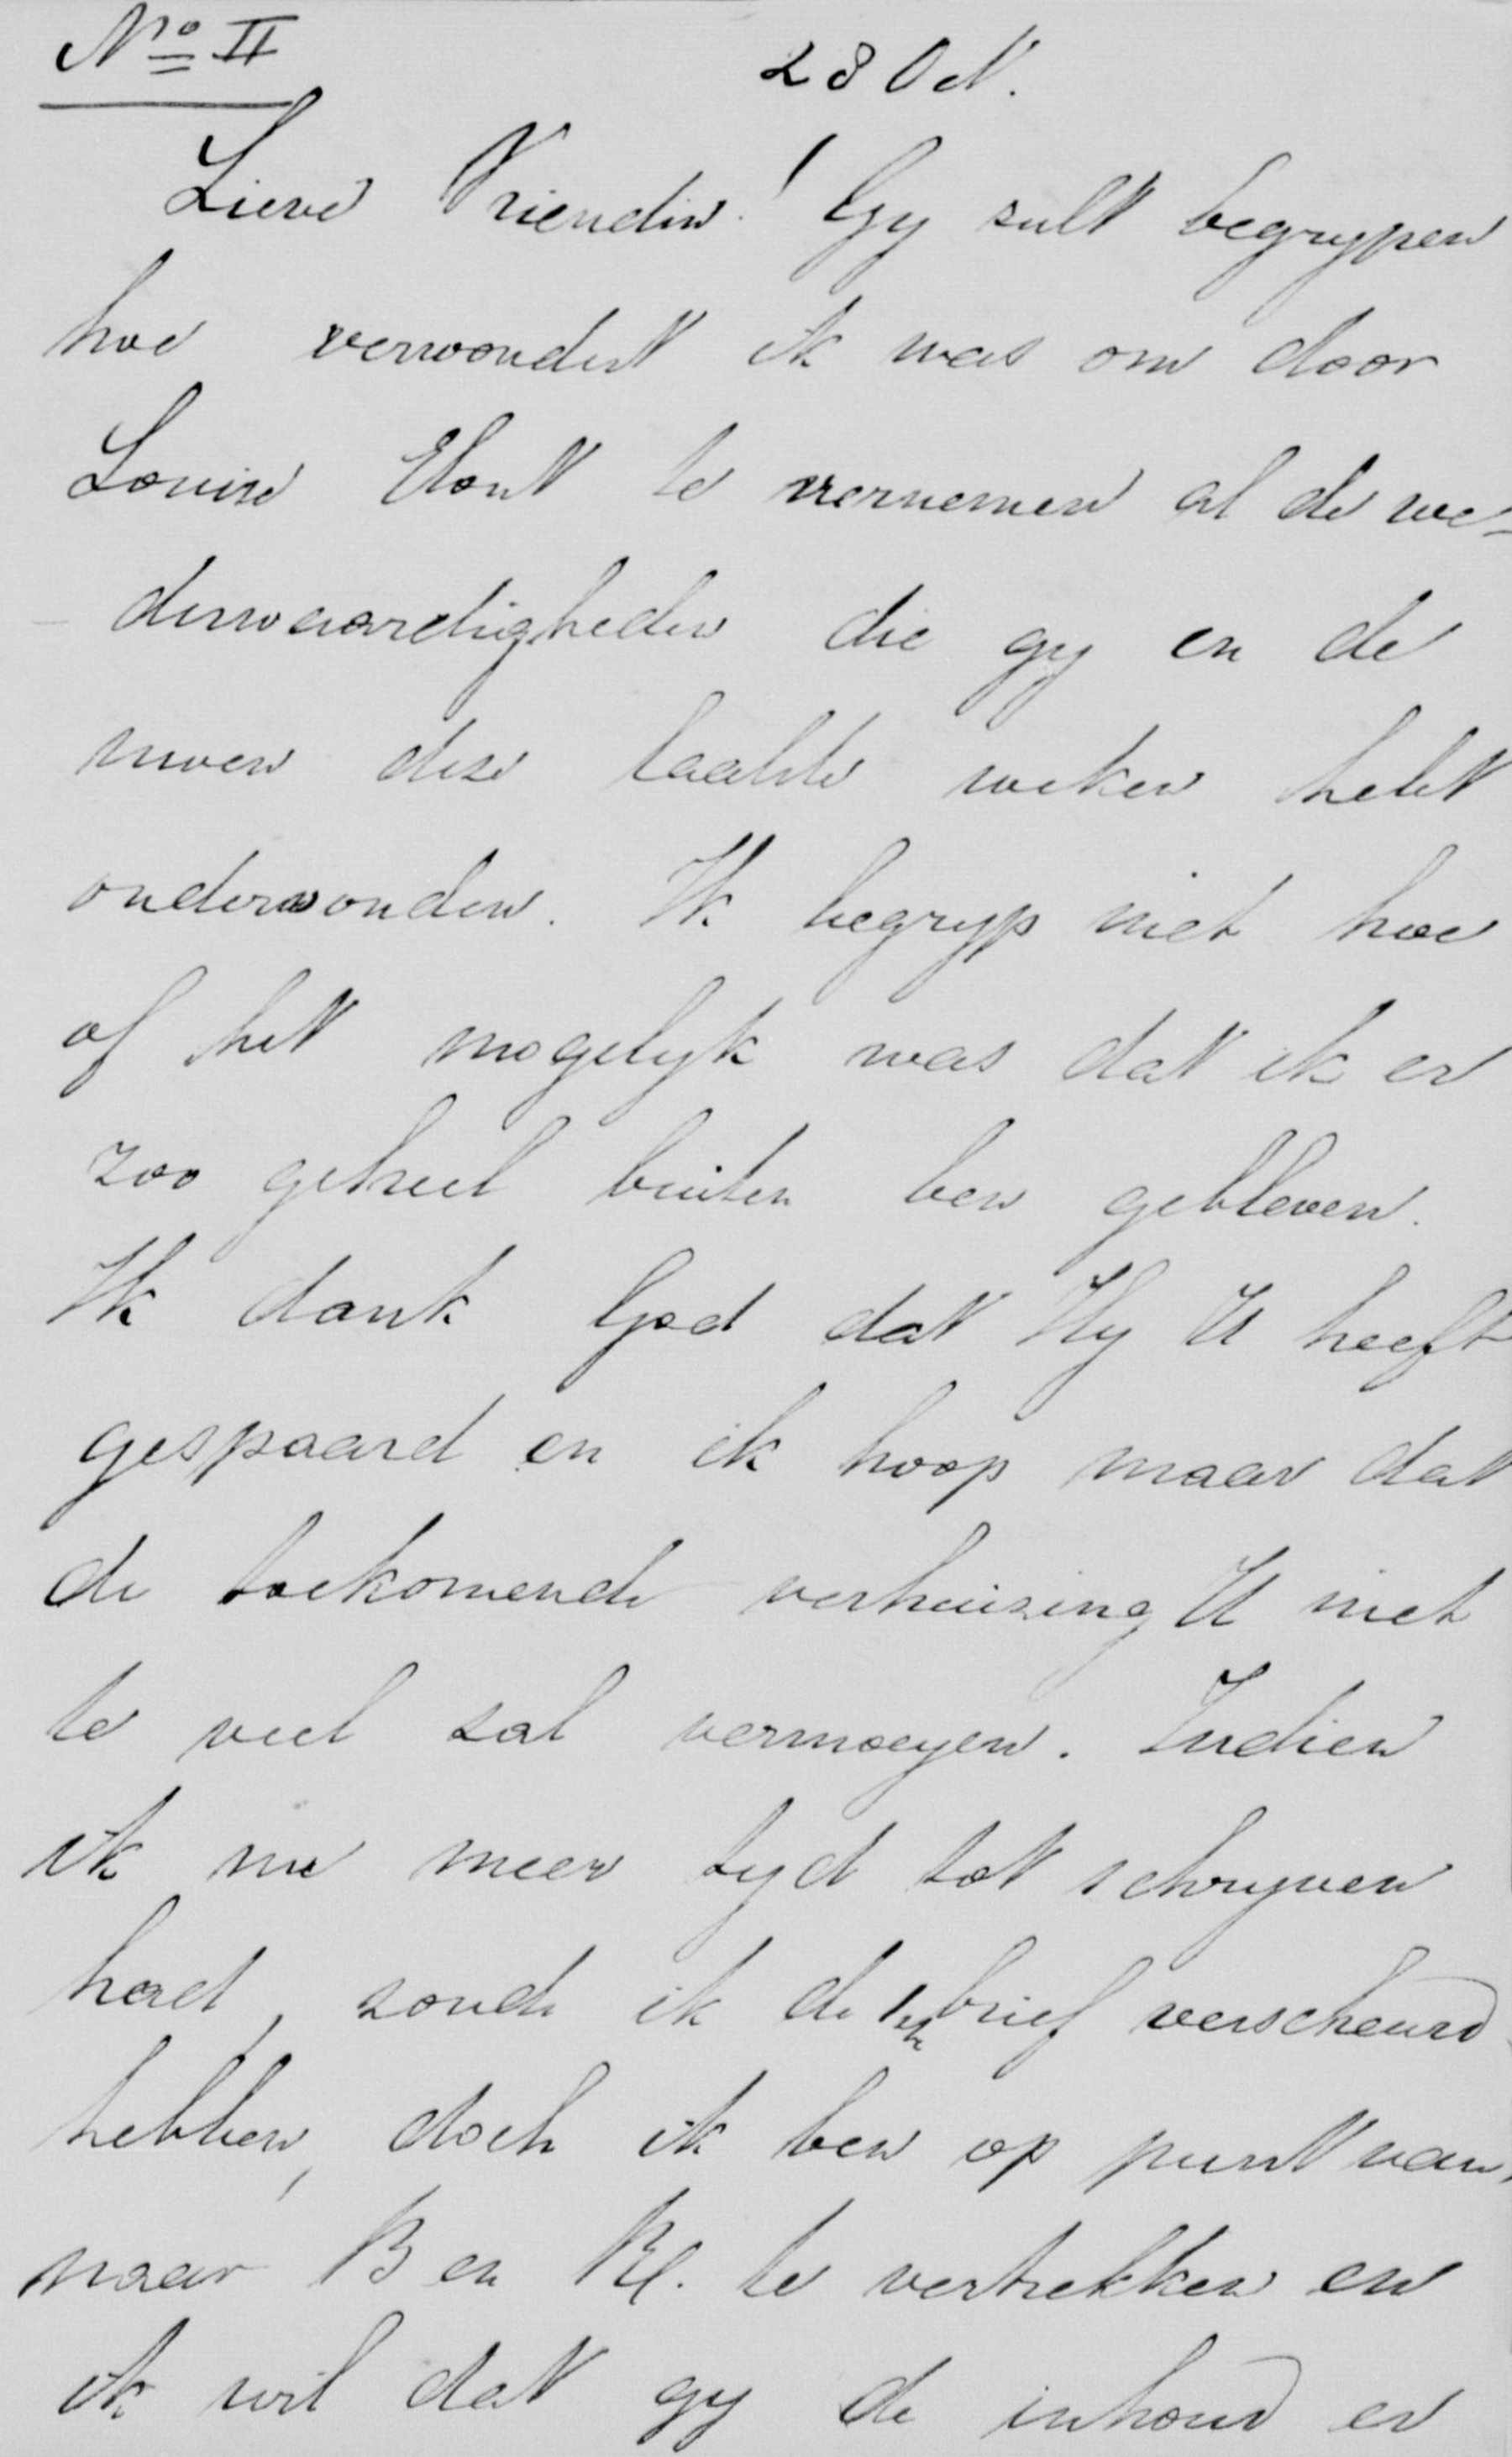 No II
28 Oct.
Lieve Vriendin! Gy zult begrypen
hoe verwondert ik was om door
Louise Elout te vernemen al de we=
derwaardigheden die gy en de
uwen deze laatste weken hebt
onderwonden. Ik begryp niet hoe
of het mogelyk was dat ik er
zoo geheel buiten ben gebleven.
Ik dank God dat Hy U heeft
gespaard en ik hoop maar dat
de toekomende verhuizing U niet
te veel zal vermoeyen. Indien
ik nu meer tyd tot schryven
had, zoude ik de 1ste brief verscheurd
hebben, doch ik ben op punt van,
naar B en Bl. te vertrekken en
ik wil dat gy de inhoud er